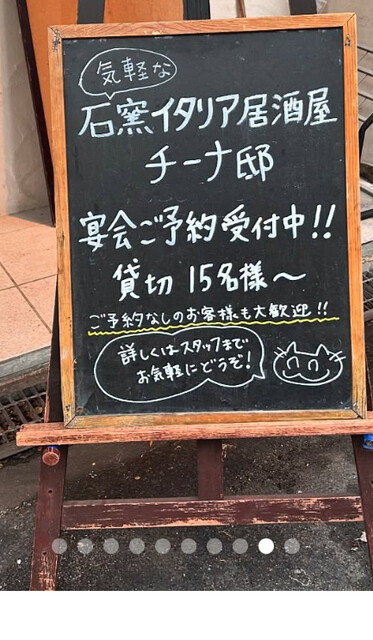 気軽な
石窯イタリア居酒屋
チーナ邸
宴会ご予約受付中!!
貸切 15名様～
ご予約なしのお客様も大歓迎!!
詳しくはスタッフまで
お気軽にどうぞ!